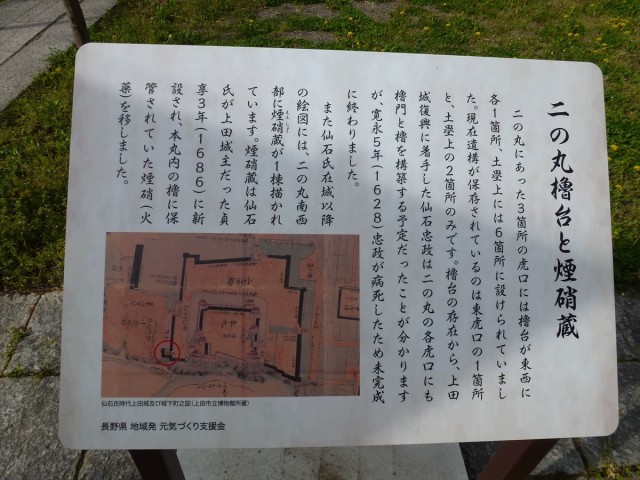 二の丸櫓台と煙硝蔵
二の丸にあった3箇所の虎口には櫓台が東西に
各1箇所、土塁上には6箇所に設けられていまし
た。現在遺構が保存されているのは東虎口の1箇所
と、土塁上の2箇所のみです。櫓台の存在から、上田
城復興に着手した仙石忠政は二の丸の各虎口にも
櫓門と櫓を構築する予定だったことが分かります
が、寛永5年(1628)忠政が病死したため未完成
に終わりました。
また仙石氏在城以降
の絵図には、二の丸南西
部に煙硝蔵が1棟描かれ
ています。煙硝蔵は仙石
氏が上田城主だった貞
享3年(1686)に新
設され、本丸内の櫓に保
管されていた煙硝(火
薬)を移しました。
仙石氏時代上田城及び城下町之図(上田市立博物館所蔵)
長野県 地域発 元気づくり支援金